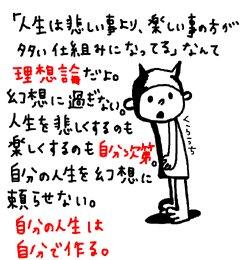 「人生は悲しい事より、楽しい事の方が
多い仕組みになってる」なんて
理想論だよ。
幻想に過ぎない。
人生を悲しくするのも
楽しくするのも自分次第。
自分の人生を幻想に
頼らせない。
自分の人生は
自分で作る。
くらっち